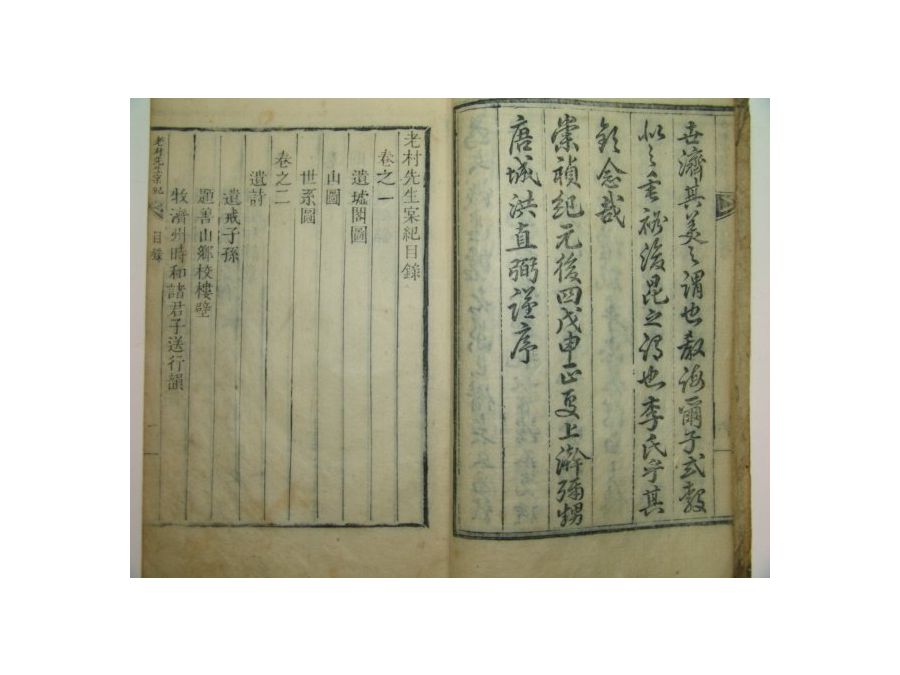 世濟其美之謂也敎誨爾子式穀
似之垂裕後昆之謂也李氏乎其
欽念哉
崇禎紀元後四戊申正更上澣彌甥
唐城洪直弼謹序
老村先生案紀目錄
卷之一
遺墟閣圖
山圖
世系圖
卷之二
遺詩
遺戒子孫
題善山鄉校樓壁
牧濟州時和諸君子送行韻
老村先生案紀
目錄